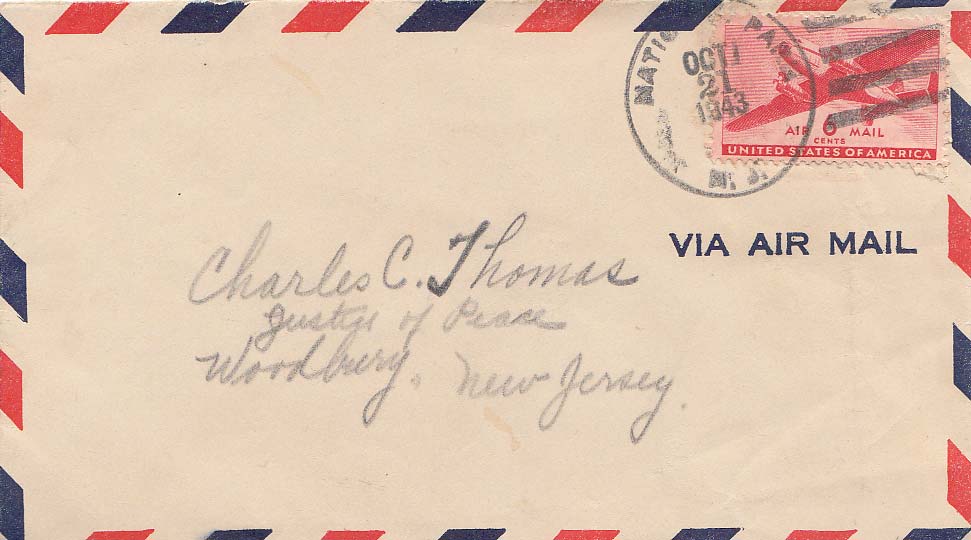 NATIONAL PARK
OCT
21
1943
N. J.
AIR 6 MAIL
CENTS
UNITED STATES OF AMERICA
VIA AIR MAIL
Charles C. Thomas
Justice of Peace
Woodbury, New Jersey.